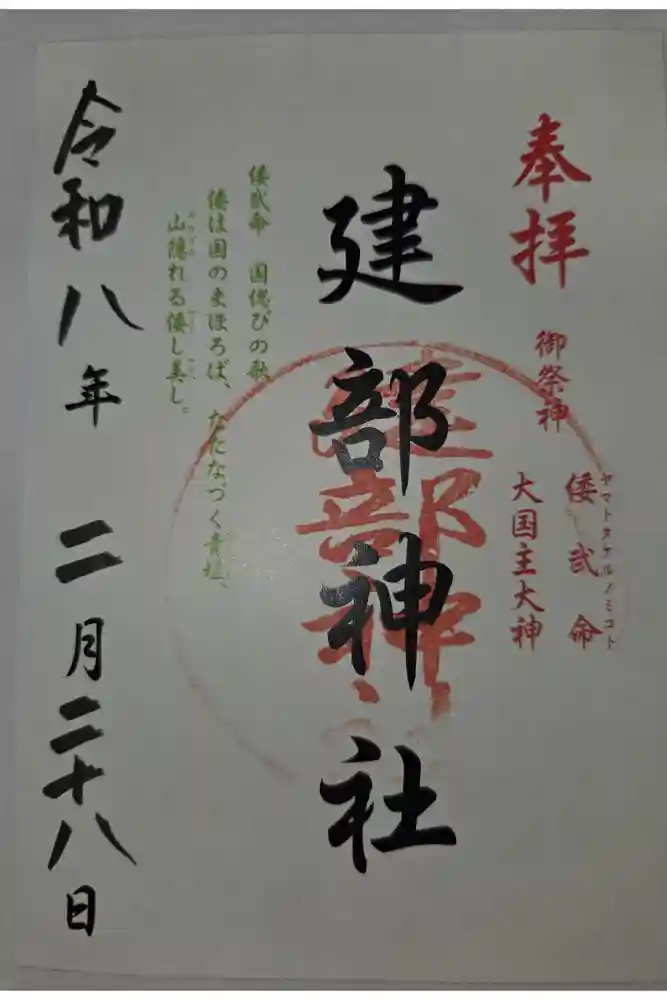 奉拝
御祭神
ヤマトタケルノミコト
倭武命
大国主大神
建部神社
倭武命 国偲びの歌
倭は国のまほろば、たたなづく青垣、
山隠れる倭し美し。
令和八年 二月二十八日